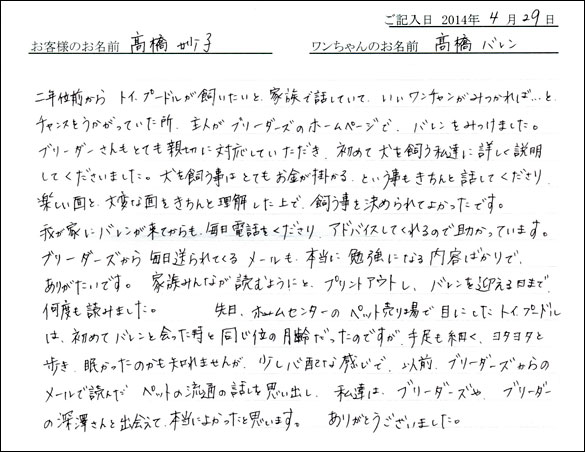 ご記入日 2014年 4 月 29 日
お客様のお名前 高橋 妙子 ワンちゃんのお名前 高橋 バレン
二年位前から トイプードルが飼いたいと、家族で話していて、いいワンチャンがみつかれば…と、
チャンスをうかがっていた所、主人がブリーダーズのホームページで、バレンをみつけました。
ブリーダーさんもとても親切に対応していただき、初めて犬を飼う私達に詳しく説明
してくださいました。犬を飼う事はとてもお金が掛かる、という事もきちんと話してくださり、
楽しい面と、大変な面をきちんと理解した上で、飼う事を決められてよかったです。
我が家にバレンが来てからも、毎日電話をくださり、アドバイスしてくれるので助かっています。
ブリーダーズから毎日送られてくるメールも、本当に勉強になる内容ばかりで、
ありがたいです。 家族みんなが読むようにと、プリントアウトし、バレンを迎える日まで、
何度も読みました。 先日、ホームセンターのペット売り場で目にしたトイプードル
は、初めてバレンと会った時と同じ位の月齢だったのですが、手足も細く、ヨタヨタと
歩き、眠かったのかも知れませんが、少し心配な感じで、以前、ブリーダーズからの
メールで読んだ ペットの流通の話しを思い出し、私達は、ブリーダーズや、ブリーダー
の深澤さんと出会えて、本当によかったと思います。 ありがとうございました。